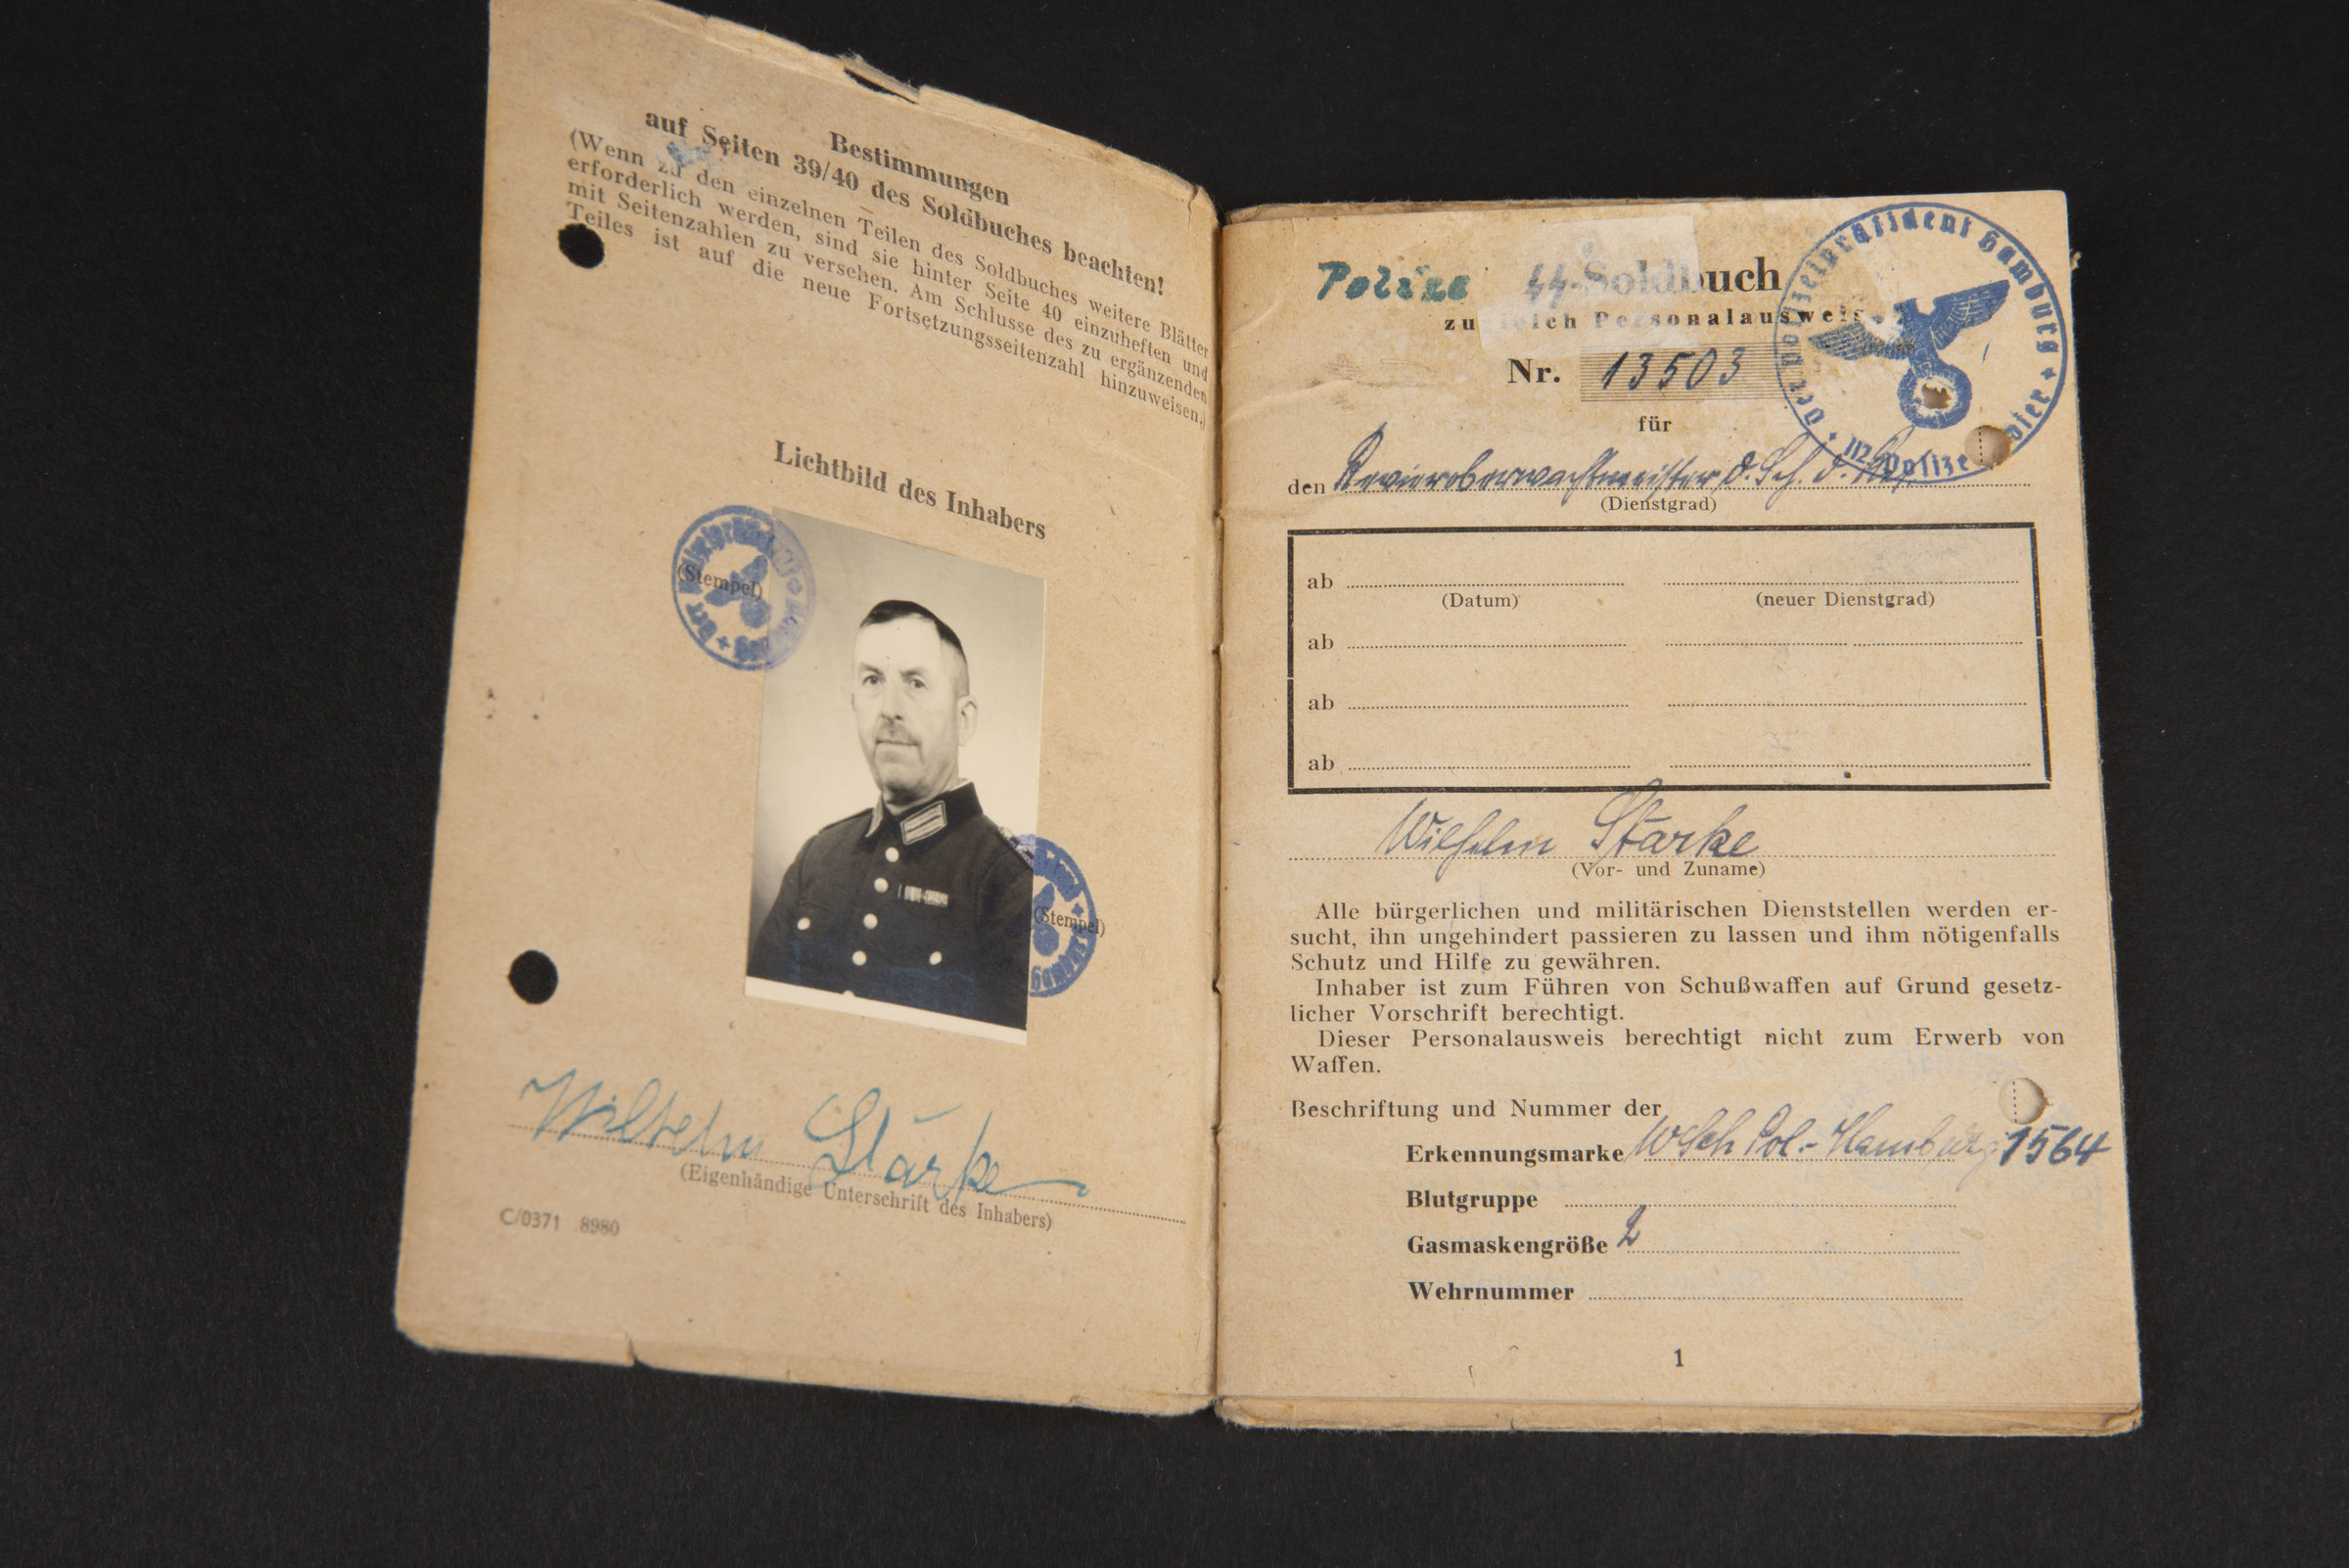 Bestimmungen
auf Seiten 39/40 des Soldbuches beachten!
(Wenn zu den einzelnen Teilen des Soldbuches weitere Blätter
erforderlich werden, sind sie hinter Seite 40 einzuheften und
mit Seitenzahlen zu versehen. Am Schlusse des zu ergänzenden
Teiles ist auf die neue Fortsetzungsseitenzahl hinzuweisen.)
Lichtbild des Inhabers
(Stempel)
(Stempel)
Wilhelm Stärke
(Eigenhändige Unterschrift des Inhabers)
C/0371 8980
SS-Soldbuch
zugleich Personalausweis
Der Polizeipräsident Hamburg
112. Polizei
Nr. 13503
für
den Revieroberwachtmeister d. Sch. d.
(Dienstgrad)
ab
(Datum) (neuer Dienstgrad)
ab
ab
ab
Wilhelm Starke
(Vor- und Zuname)
Alle bürgerlichen und militärischen Dienststellen werden er-
sucht, ihn ungehindert passieren zu lassen und ihm nötigenfalls
Schutz und Hilfe zu gewähren.
Inhaber ist zum Führen von Schußwaffen auf Grund gesetz-
licher Vorschrift berechtigt.
Dieser Personalausweis berechtigt nicht zum Erwerb von
Waffen.
Beschriftung und Nummer der
Erkennungsmarke W Sch Pol.- Hamburg 1564
Blutgruppe
Gasmaskengröße 2
Wehrnummer
1